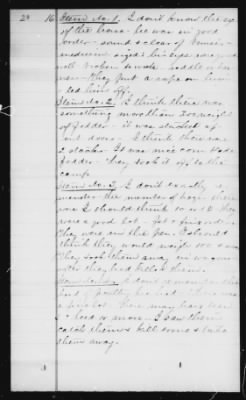 29 16 Item No. 1. I don't know the age
of the horse - he was in good
order - sound & clear of
medium size - his eyes were good
well broken to work saddle or har-
ness - they put a rope on him
& led him off.
Item No. 2. I think there was
something more than 200 weight
of fodder - it was stacked up
out doors - I think there was
2 stacks. It was nice corn blade
fodder. They took it off to the
camp.
Item No. 3. I don't exactly re-
member the number of hogs - there
was I should think 10 or 12. They
were a good lot - fat &
They were in the pen.
think they would weigh 100
They took them away in wagons
after they had killed them.
I don't remember the
poultry he had - there was
a There may have been
2 or more - I saw them
catch them & kill some & take
them away.